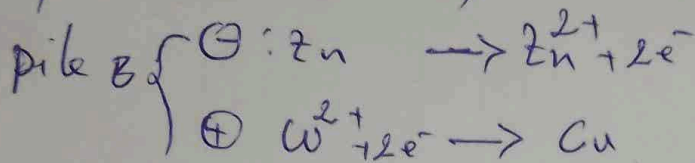 pile B { ⊖ : Zn → Zn²⁺ + 2e⁻
⊕ Cu²⁺ + 2e⁻ → Cu